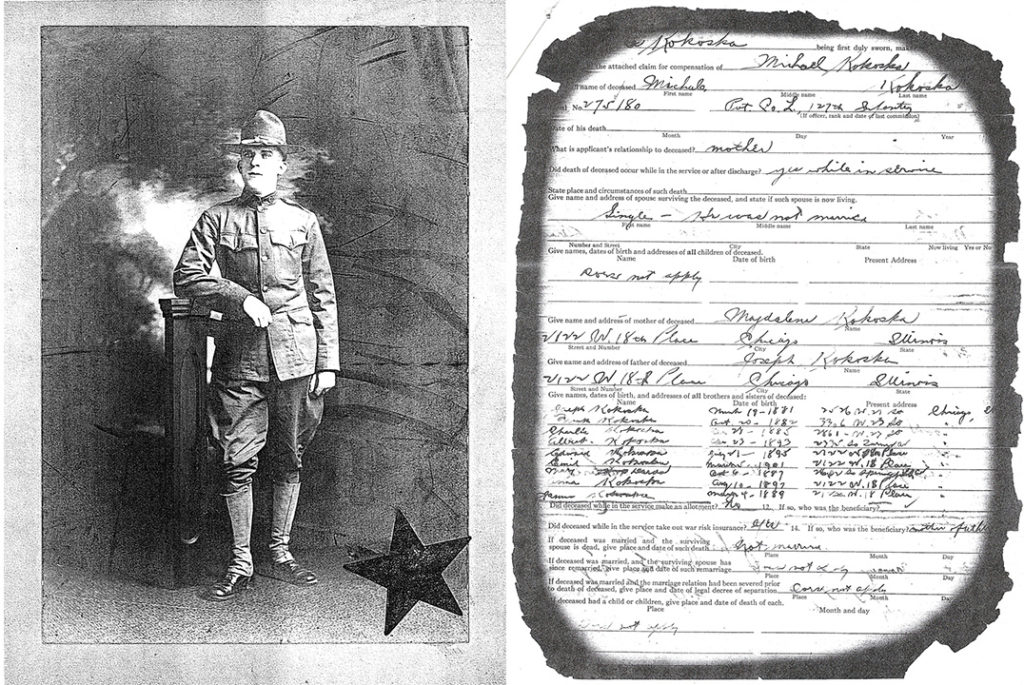 Kokoska being first duly sworn, mak
the attached claim for compensation of Michael Kokoska
name of deceased Michale Kokoska
First name Middle name Last name
No. 275180 Pvt. Co. L, 127th Infantry
(If officer, rank and date of last commission)
Date of his death
Month Day Year
What is applicant's relationship to deceased? mother
Did death of deceased occur while in the service or after discharge? yes while in service
State place and circumstances of such death
Give name and address of spouse surviving the deceased, and state if such spouse is now living.
Single – He was not married
First name Middle name Last name
Number and Street City State Now living Yes or No
Give names, dates of birth and addresses of all children of deceased.
Name Date of birth Present Address
Does not apply
Give name and address of mother of deceased Magdalene Kokoska
Name
2122 W. 18th Place Chicago Illinois
Street and Number City State
Give name and address of father of deceased Joseph Kokoska
Name
2122 W 18th Place Chicago Illinois
Street and Number City State
Give names, dates of birth, and addresses of all brothers and sisters of deceased:
Name Date of birth Present address
Joseph Kokoska March 19-1881 Chicago
Frank Kokoska Oct. 20-1882
Charlie Kokoska 1885
Albert Kokoska 1893
Edward Kokoska 1895 2122 W 18 Place
Emil Kokoska March 1901 2122 W. 18 Place
Oct 6-1887
Anna Kokoska Aug 10-1897 2122 W. 18 Place
Kokoska 1889 W. 18 Place
Did deceased while in the service make an allotment? No 12. If so, who was the beneficiary?
Did deceased while in the service take out war risk insurance? Yes 14. If so, who was the beneficiary?
If deceased was married and the surviving
spouse is dead, give place and date of such death Not married
Place Month Day
If deceased was married, and the surviving spouse has
since remarried, give place and date of such remarriage
Place Month Day
If deceased was married and the marriage relation had been severed prior
to death of deceased, give place and date of legal decree of separation Does not apply
Place Month Day
deceased had a child or children, give place and date of death of each.
Place Month and day
not apply